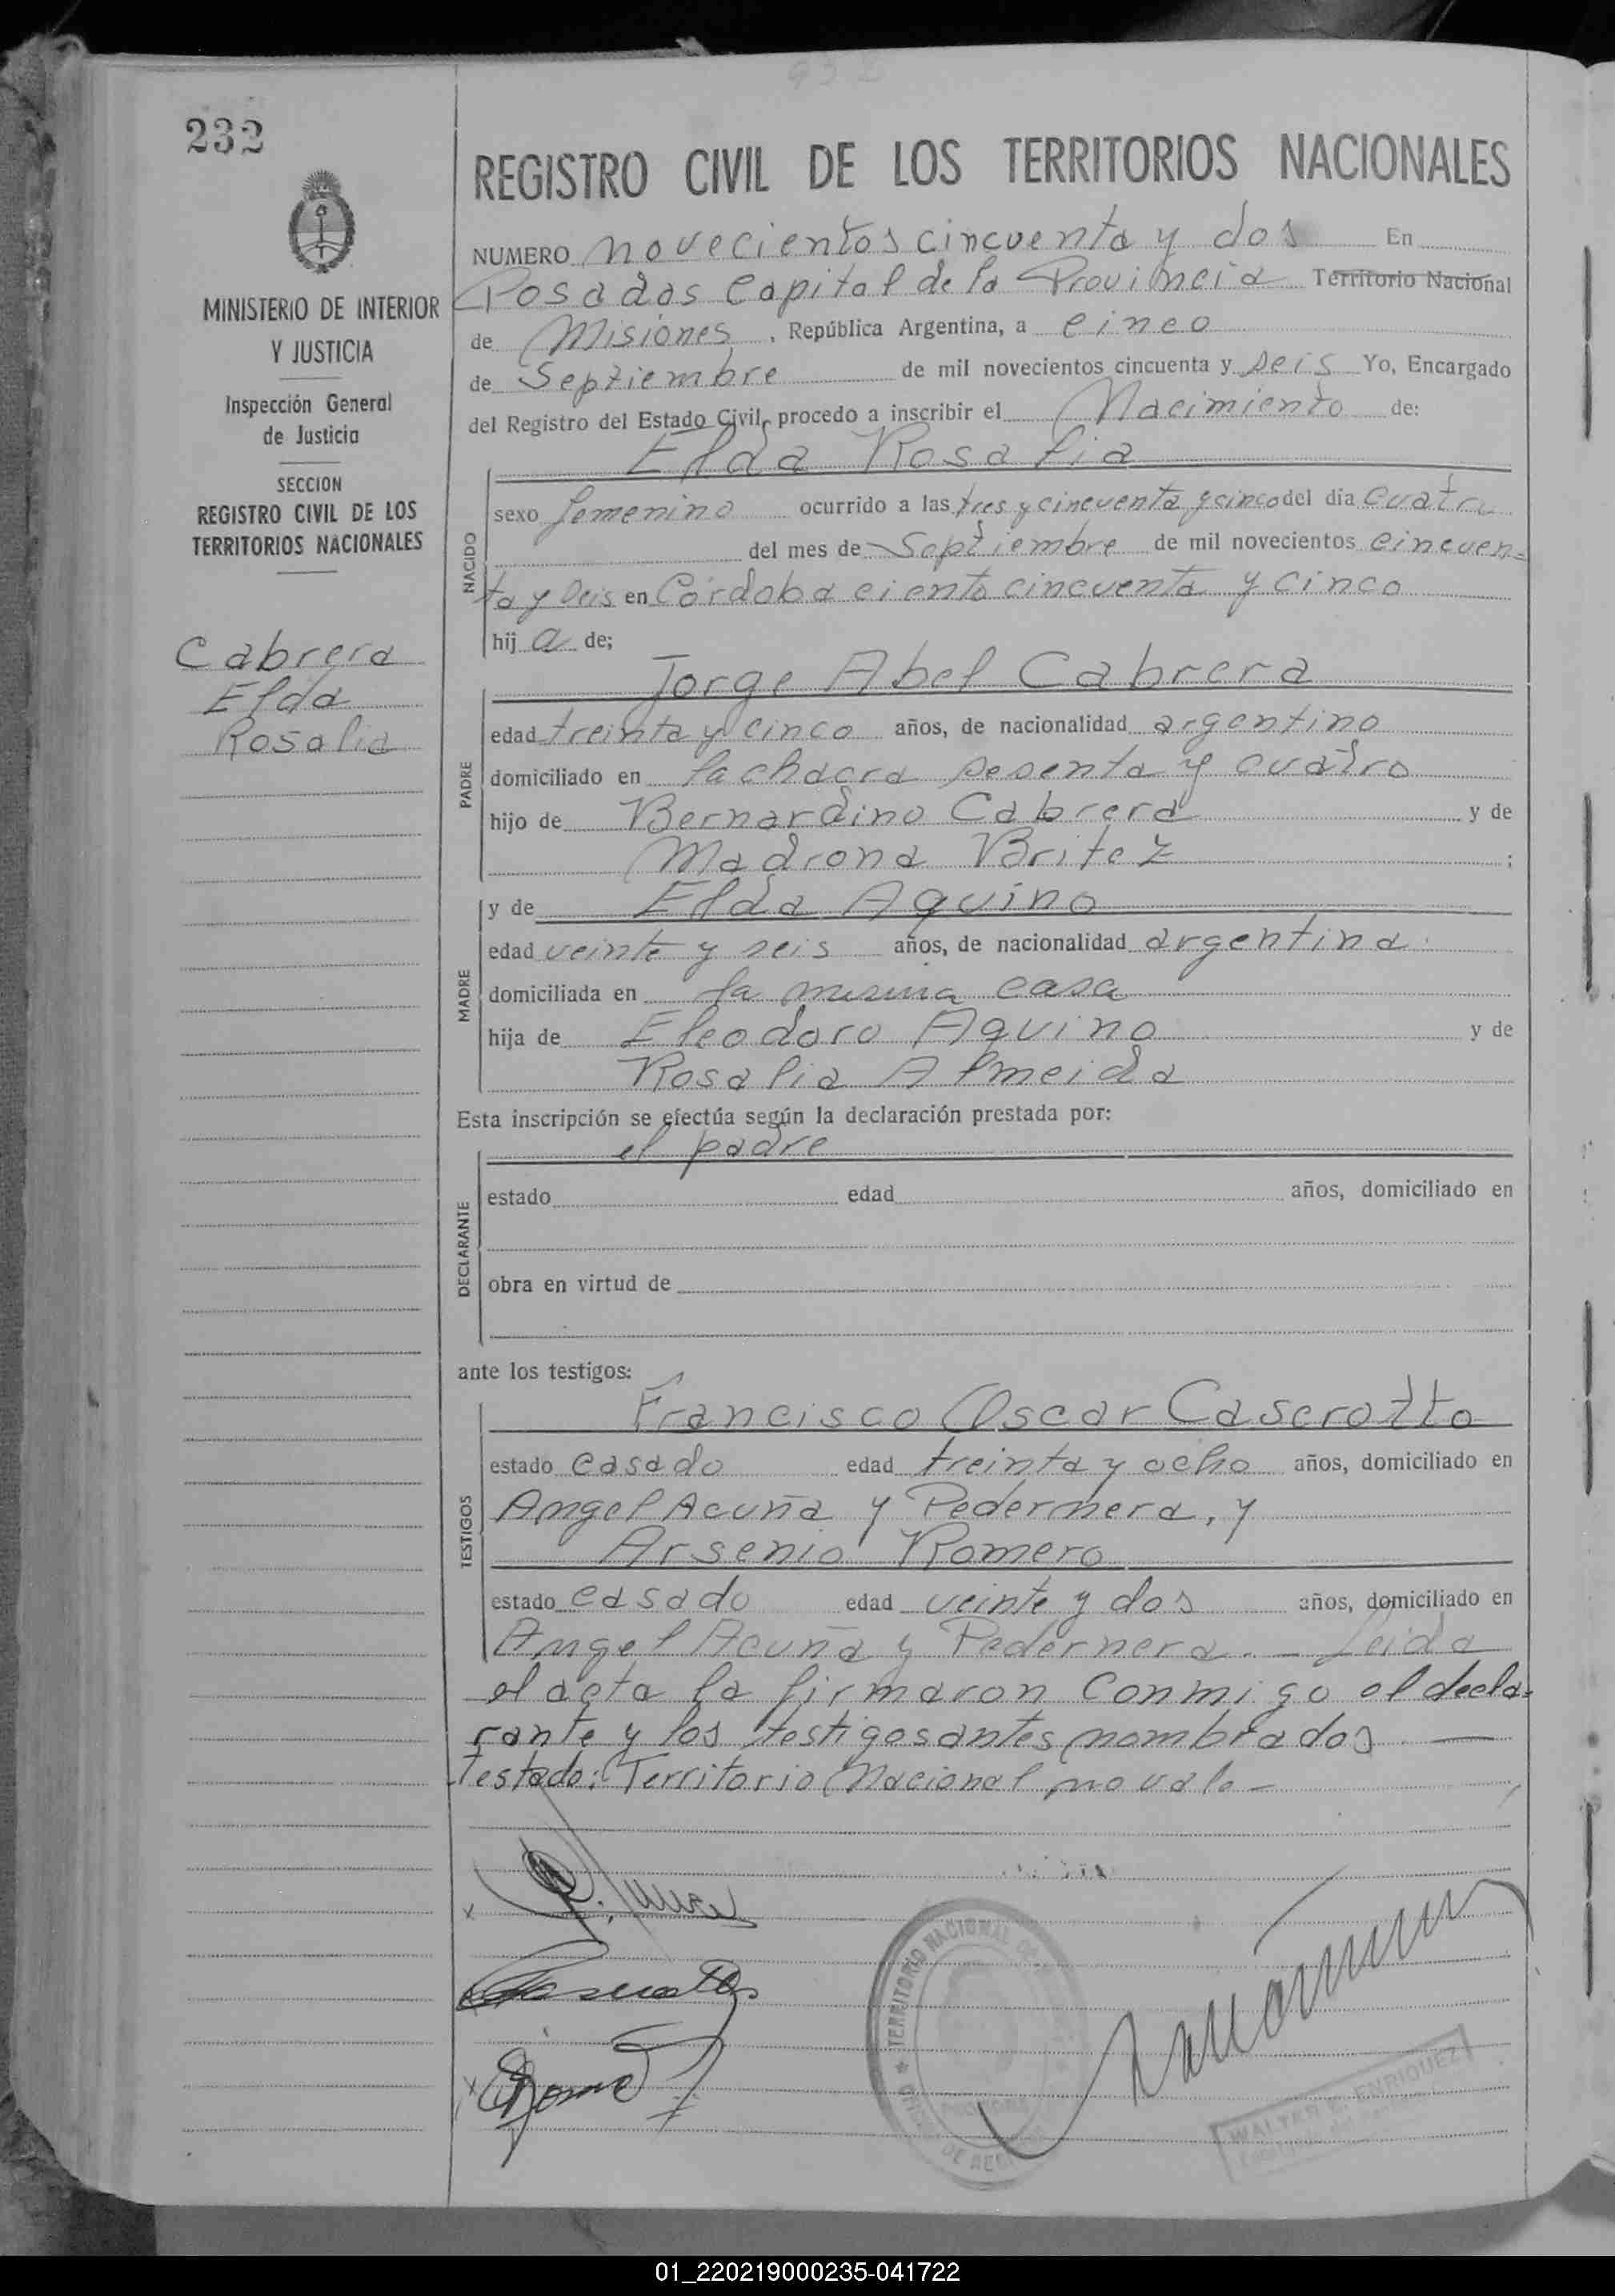 232
MINISTERIO DE INTERIOR
Y JUSTICIA
Inspección General
de Justicia
SECCION
REGISTRO CIVIL DE LOS
TERRITORIOS NACIONALES
Cabrera
Elda
Rosalia
REGISTRO CIVIL DE LOS TERRITORIOS NACIONALES
NUMERO novecientos cincuenta y dos En
Posadas Capital de la Provincia Territorio Nacional
de Misiones, República Argentina, a cinco
de Septiembre de mil novecientos cincuenta y seis Yo, Encargado
del Registro del Estado Civil, procedo a inscribir el Nacimiento de:
Elda Rosalia
NACIDO
sexo femenino ocurrido a las tres y cincuenta y cinco del día cuatro
del mes de Septiembre de mil novecientos cincuen=
ta y seis en Córdoba ciento cincuenta y cinco
hij a de;
Jorge Abel Cabrera
PADRE
edad treinta y cinco años, de nacionalidad argentino
domiciliado en la chacra sesenta y cuatro
hijo de Bernardino Cabrera y de
Madrona Britez ;
MADRE
y de Elda Aquino
edad veinte y seis años, de nacionalidad argentina
domiciliada en la misma casa
hija de Eleodoro Aquino y de
Rosalia Almeida
Esta inscripción se efectúa según la declaración prestada por:
el padre
DECLARANTE
estado edad años, domiciliado en
obra en virtud de
ante los testigos:
Francisco Oscar Cascrotto
TESTIGOS
estado casado edad treinta y ocho años, domiciliado en
Angel Acuña y Pedernera, y
Arsenio Romero
estado casado edad veinte y dos años, domiciliado en
Angel Acuña y Pedernera. - Leida
el acta la firmaron conmigo el decla=
rante y los testigos antes nombrados —
Testado: Territorio Nacional no vale -
TERRITORIO NACIONAL DE
WALTER E. ENRIQUEZ
01_220219000235-041722